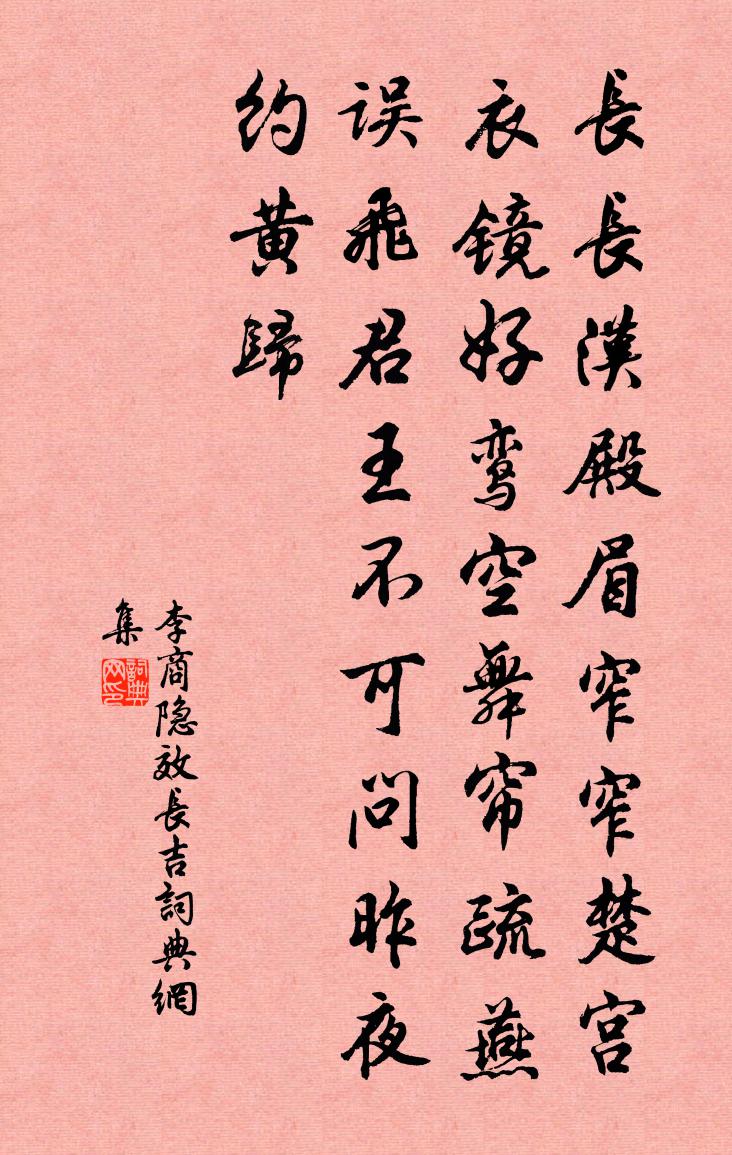 長長漢殿眉窄窄楚宫
衣镜好鸾空舞帘疏燕
误飛君王不可問昨夜
约黄歸
李商隐效長吉詞典網
集
詞典网印